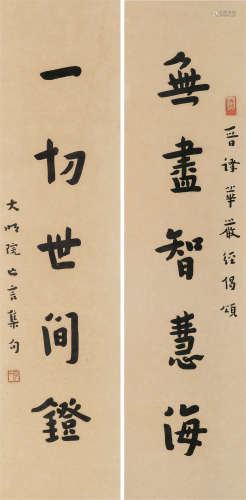 晉譯華嚴經偈頌
無盡智慧海
一切世間鐙
大明院亡言集句